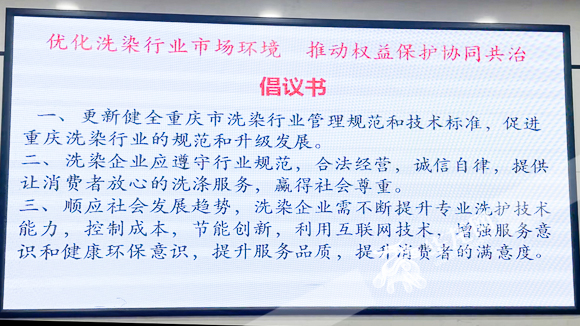 优化洗染行业市场环境 推动权益保护协同共治
倡议书
一、更新健全重庆市洗染行业管理规范和技术标准，促进
重庆洗染行业的规范和升级发展。
二、洗染企业应遵守行业规范，合法经营，诚信自律，提供
让消费者放心的洗涤服务，赢得社会尊重。
三、顺应社会发展趋势，洗染企业需不断提升专业洗护技术
能力，控制成本，节能创新，利用互联网技术，增强服务意
识和健康环保意识，提升服务品质，提升消费者的满意度。